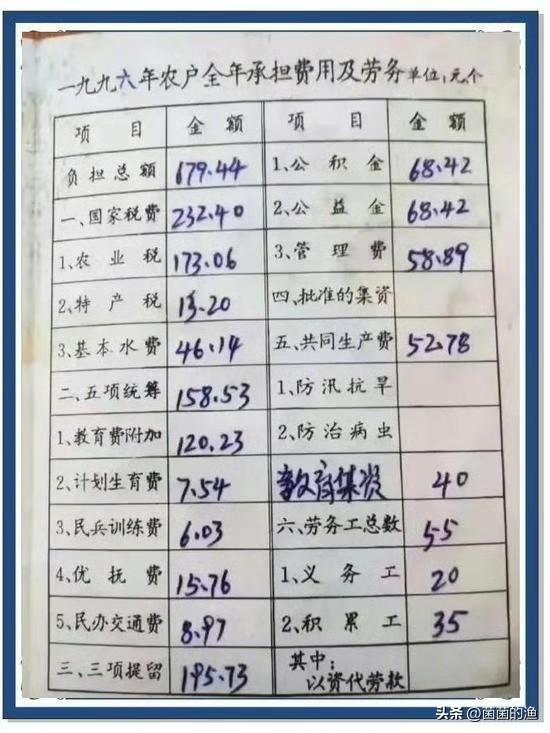 一九九六年农户全年承担费用及劳务 单位:元、个
项目 金额 项目 金额
负担总额 679.44 1.公积金 68.42
一、国家税费 232.40 2.公益金 68.42
1.农业税 173.06 3.管理费 58.89
2.特产税 13.20 四、批准的集资
3.基本水费 46.14 五、共同生产费 52.78
二、五项统筹 158.53 1.防汛抗旱
1.教育费附加 120.23 2.防治病虫
2.计划生育费 7.54 教育集资 40
3.民兵训练费 6.03 六、劳务工总数 55
4.优抚费 15.76 1.义务工 20
5.民办交通费 8.97 2.积累工 35
三、三项提留 195.73 其中:
以资代劳款
头条 @菌菌的渔